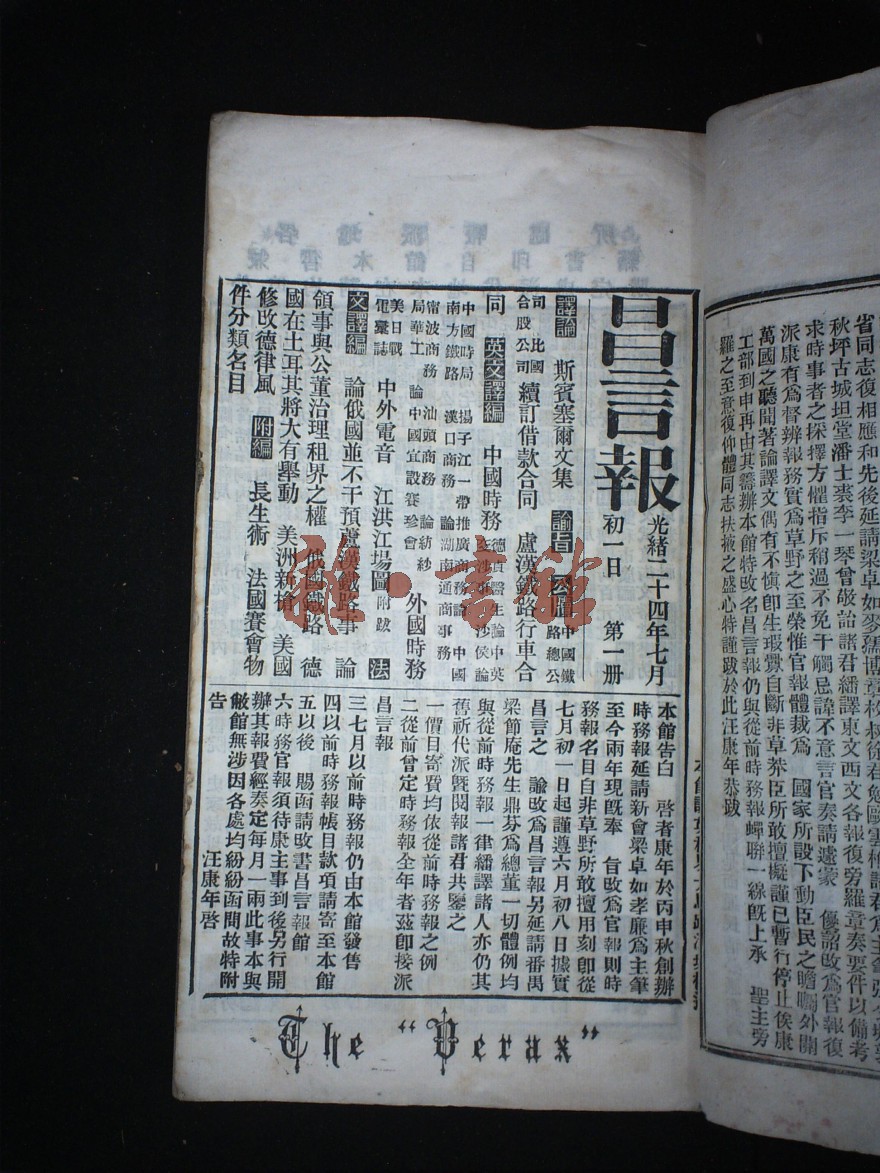 省同志復相應和先後延請梁卓如麥孺博章枚叔徐
秋坪古城坦堂潘士裘李一琴曾敬詒諸君繙譯東文西文各報復旁羅章奏要件以備考
求時事者之採擇方懼指斥稍過不免干觸忌諱不意言官奏請遽蒙 優詔改爲官報復
派康有爲督辦報務實爲草野之至榮惟官報體裁爲 國家所設下動臣民之瞻矚外關
萬國之聽聞著論譯文偶有不愼卽生瑕釁自斷非草茅臣所敢擅擬謹已暫行停止俟康
工部到申再由其籌辦本館特改名昌言報仍與從前時務報蟬聯一線旣上承 聖主旁
羅之至意復仰體同志扶掖之盛心特謹跋於此汪康年恭跋
昌言報
光緒二十四年七月
初一日 第一册
譯論 斯賓塞爾文集 諭旨 公牘 中國鐵路總公
司比國合股公司 續訂借款合同 盧漢鐵路行車合
同 英文譯編 中國時務
中國時局 揚子江一帶推廣商務論 中國
南方鐵路 漢口商務 論湖南通商事務
甯波商務 汕頭商務 論紡紗
局華工 論中國宜設賽珍會 外國時務
美日戰
電彙誌 中外電音 江洪江場圖 附跋 法
文譯編 論俄國並不干預蘆漢鐵路事 論
領事與公董治理租界之權 俄國鐵路 德
國在土耳其將大有舉動 美洲新槍 美國
修改德律風 附編 長生術 法國賽會物
件分類名目
本館告白 啓者康年於丙申秋創辦
時務報延請新會梁卓如孝廉爲主筆
至今兩年現旣奉 旨改爲官報則時
務報名目自非草野所敢擅用刻卽從
七月初一日起謹遵六月初八日據實
昌言之 諭改爲昌言報另延請番禺
梁節庵先生鼎芬爲總董一切體例均
與從前時務報一律繙譯諸人亦仍其
舊祈代派曁閱報諸君共鑒之
一價目寄費均依從前時務報之例
二從前曾定時務報全年者茲卽接派
昌言報
三七月以前時務報仍由本館發售
四以前時務報帳目款項請寄至本館
五以後 賜函請改書昌言報館
六時務官報須待康主事到後另行開
辦其報費經奏定每月一兩此事本與
敝館無涉因各處均紛紛函問故特附
告 汪康年啓